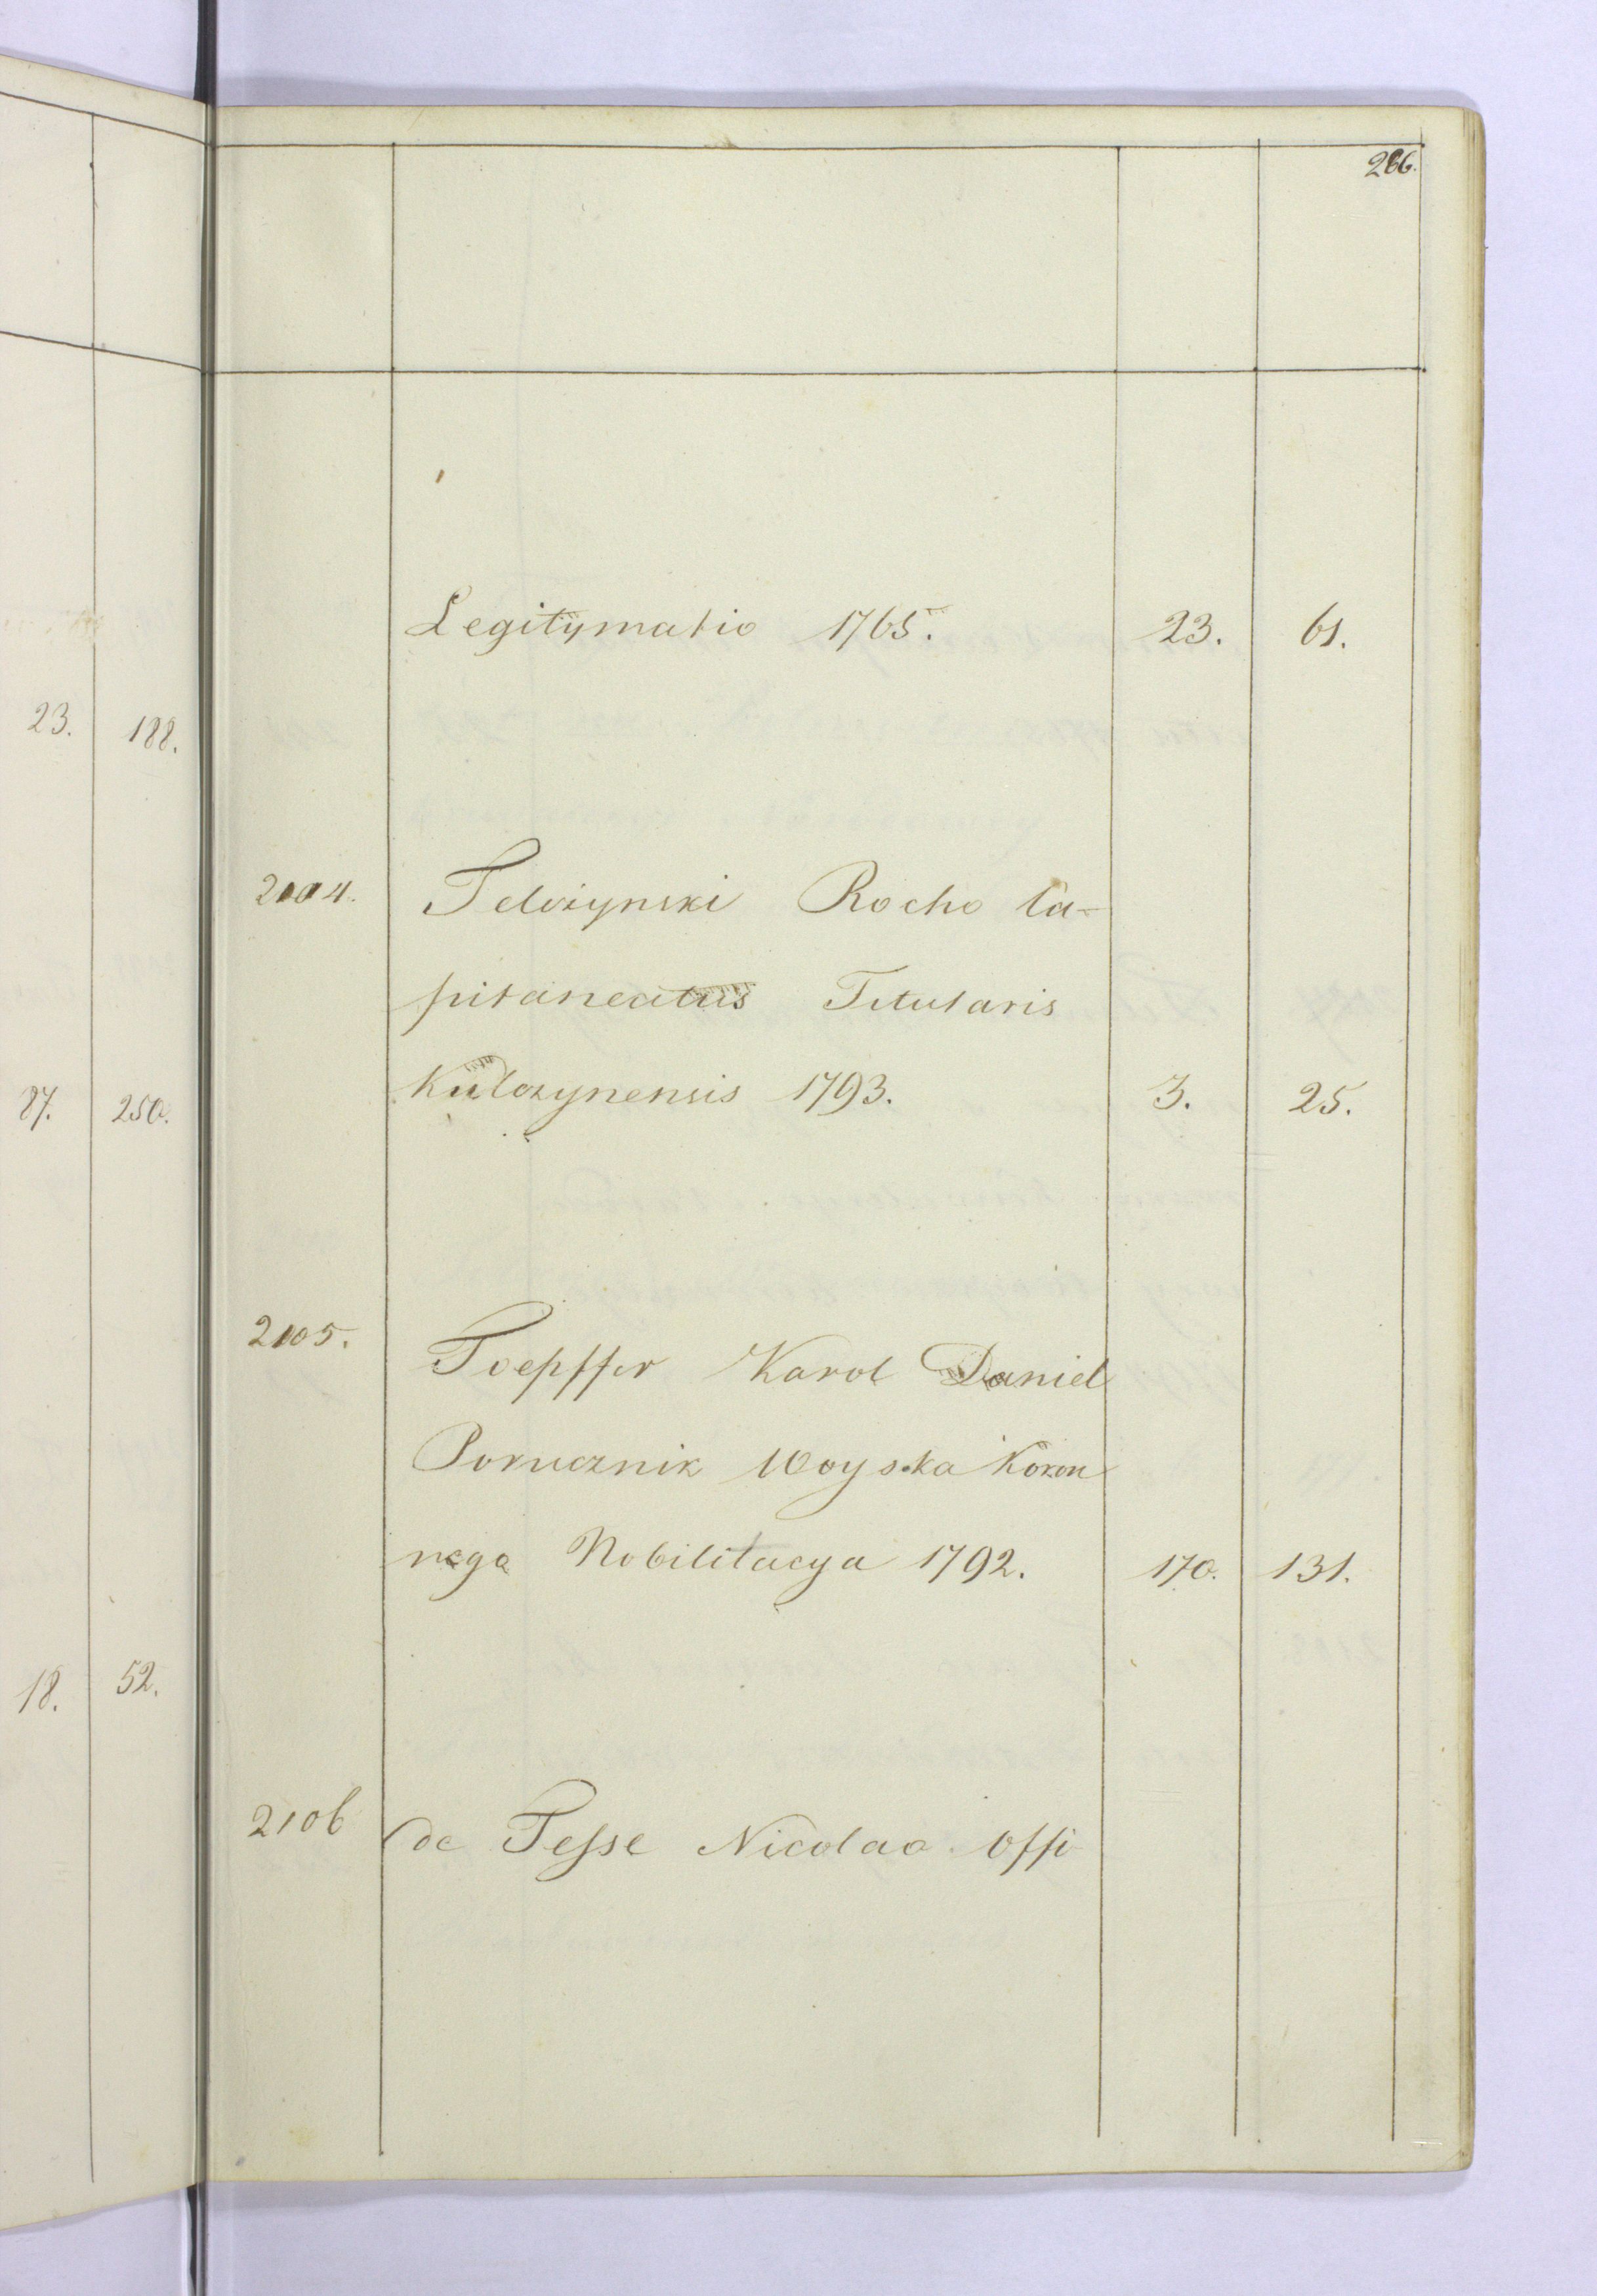 266.
Legitymatio 1765. 23. 61.
23. 188.
2104. Telczynski Rocho Ca-
pitaneatus Titularis
Kulczynensis 1793. 3. 25.
87. 250.
2105. Toepffer Karol Daniel
Porucznik Woyska Koron
nego Nobilitacya 1792. 170. 131.
18. 52.
2106 de Tesse Nicolao Offi